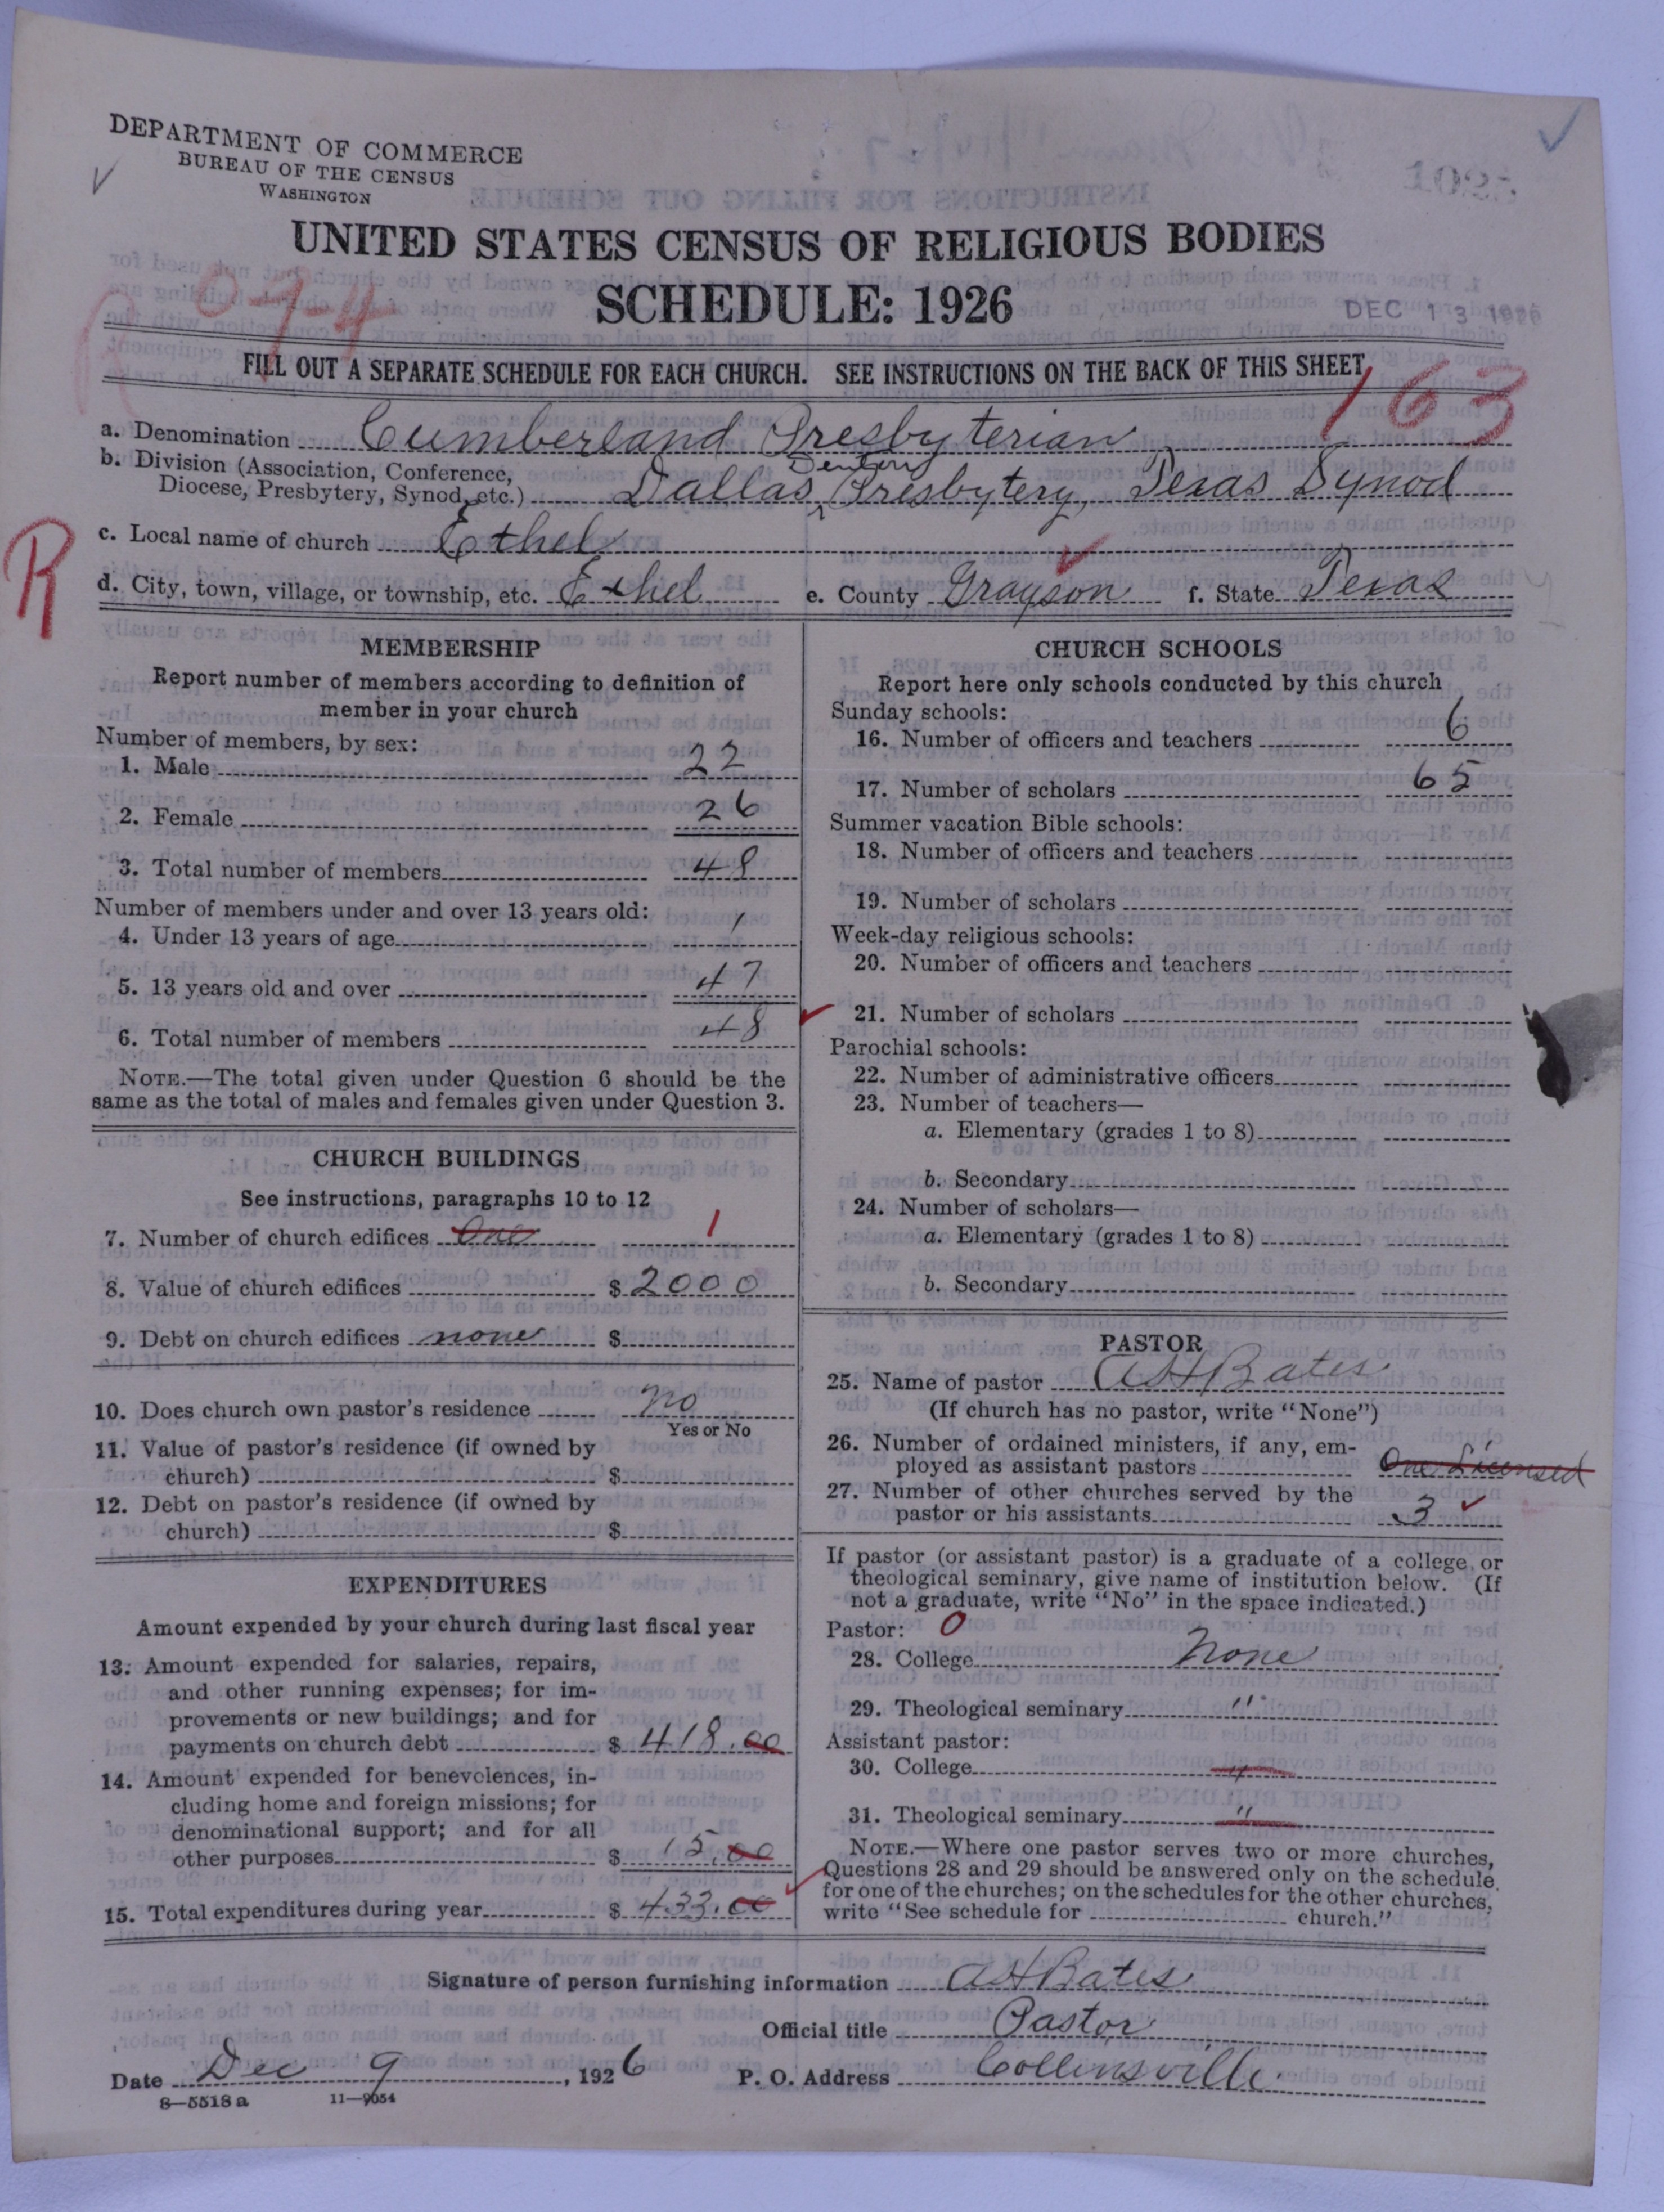 DEPARTMENT OF COMMERCE
BUREAU OF THE CENSUS
WASHINGTON
UNITED STATES CENSUS OF RELIGIOUS BODIES
SCHEDULE: 1926
DEC 13 1926
FILL OUT A SEPARATE SCHEDULE FOR EACH CHURCH. SEE INSTRUCTIONS ON THE BACK OF THIS SHEET
163
a. Denomination Cumberland Presbyterian
b. Division (Association, Conference,
Denton
Diocese, Presbytery, Synod, etc.) Dallas Presbytery, Texas Synod
R
c. Local name of church Ethel
d. City, town, village, or township, etc. Ethel e. County Grayson f. State Texas
MEMBERSHIP
Report number of members according to definition of
member in your church
Number of members, by sex:
1. Male 22
2. Female 26
3. Total number of members 48
Number of members under and over 13 years old:
4. Under 13 years of age 1
5. 13 years old and over 47
6. Total number of members 48
NOTE.—The total given under Question 6 should be the
same as the total of males and females given under Question 3.
CHURCH BUILDINGS
See instructions, paragraphs 10 to 12
7. Number of church edifices One 1
8. Value of church edifices $ 2000
9. Debt on church edifices none $
10. Does church own pastor's residence no
Yes or No
11. Value of pastor's residence (if owned by
church) $
12. Debt on pastor's residence (if owned by
church) $
EXPENDITURES
Amount expended by your church during last fiscal year
13. Amount expended for salaries, repairs,
and other running expenses; for im-
provements or new buildings; and for
payments on church debt $ 418.00
14. Amount expended for benevolences, in-
cluding home and foreign missions; for
denominational support; and for all
other purposes $ 15.00
15. Total expenditures during year $ 433.00
CHURCH SCHOOLS
Report here only schools conducted by this church
Sunday schools:
16. Number of officers and teachers 6
17. Number of scholars 65
Summer vacation Bible schools:
18. Number of officers and teachers
19. Number of scholars
Week-day religious schools:
20. Number of officers and teachers
21. Number of scholars
Parochial schools:
22. Number of administrative officers
23. Number of teachers—
a. Elementary (grades 1 to 8)
b. Secondary
24. Number of scholars—
a. Elementary (grades 1 to 8)
b. Secondary
PASTOR
25. Name of pastor A H Bates
(If church has no pastor, write "None")
26. Number of ordained ministers, if any, em-
ployed as assistant pastors One Licensed
27. Number of other churches served by the
pastor or his assistants 3
If pastor (or assistant pastor) is a graduate of a college or
theological seminary, give name of institution below. (If
not a graduate, write "No" in the space indicated.)
Pastor: 0
28. College None
29. Theological seminary "
Assistant pastor:
30. College "
31. Theological seminary "
NOTE.—Where one pastor serves two or more churches,
Questions 28 and 29 should be answered only on the schedule
for one of the churches; on the schedules for the other churches,
write "See schedule for church."
Signature of person furnishing information A H Bates
Official title Pastor
Date Dec 9, 1926 P. O. Address Collinsville
8—5518 a 11—9054